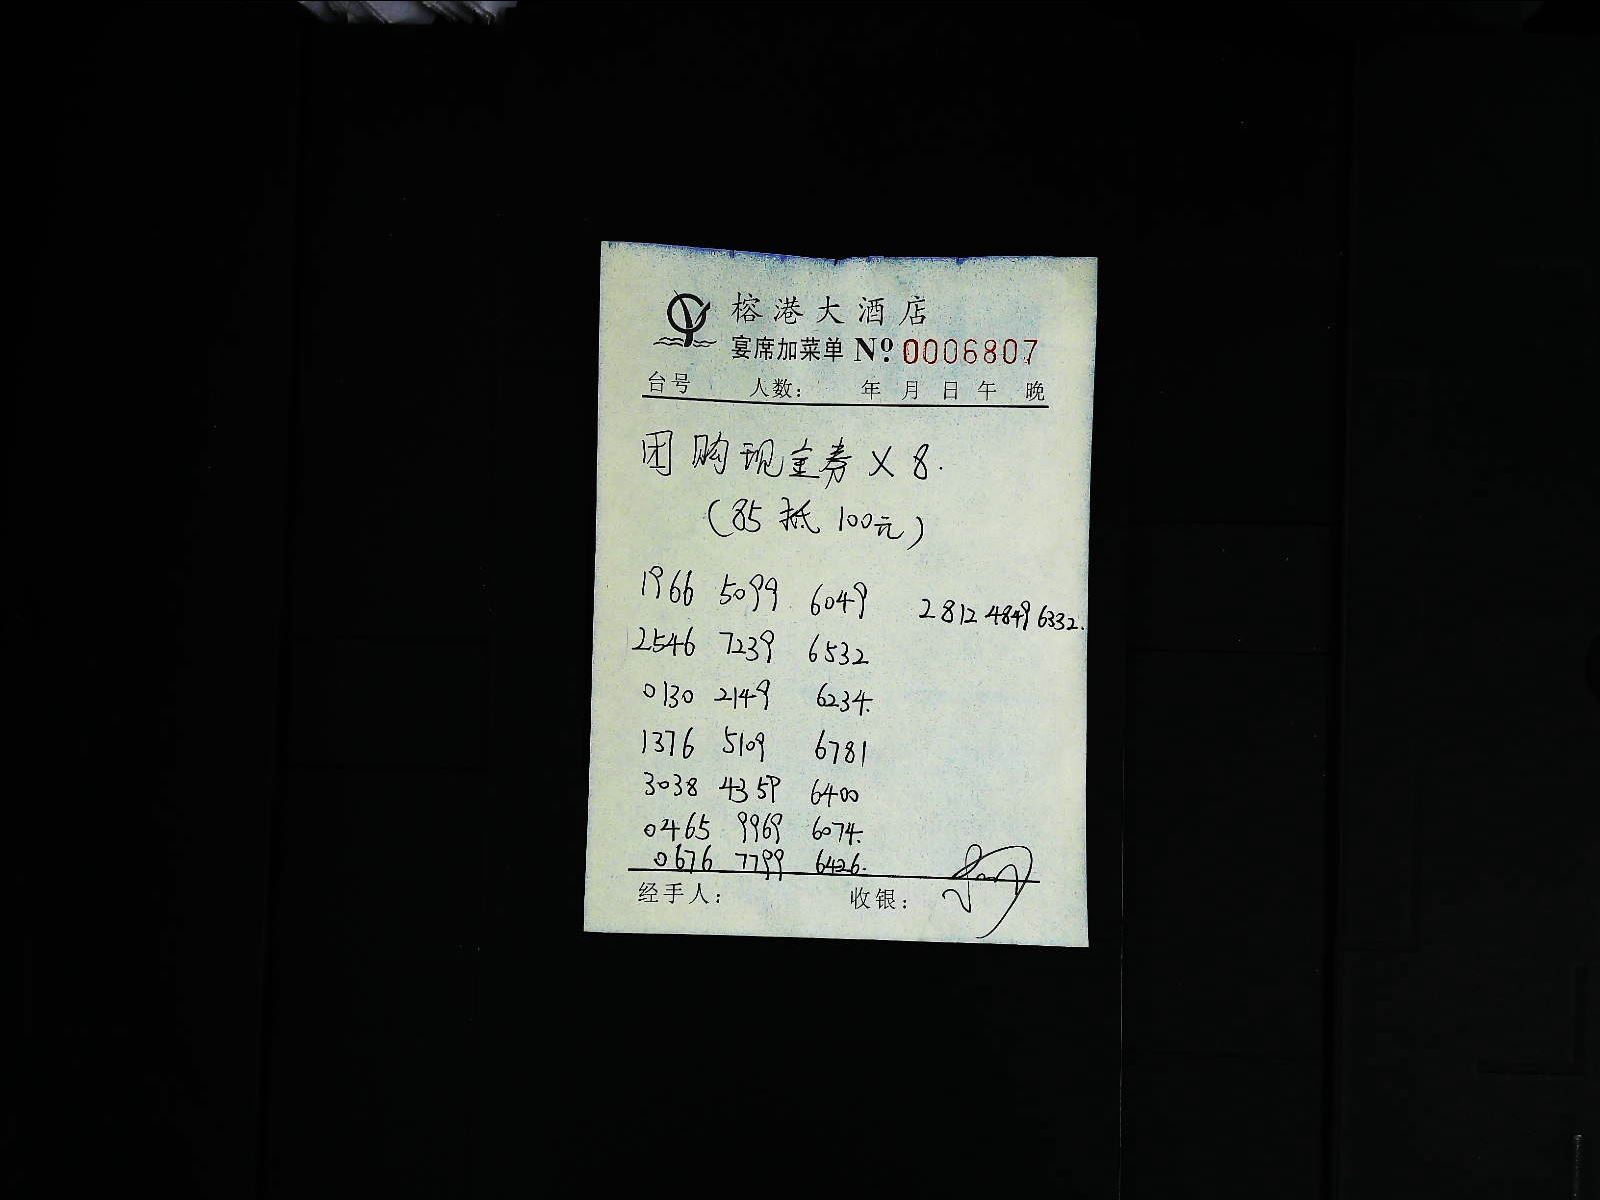 榕港大酒店
宴席加菜单 Nº 0006807
台号 人数: 年 月 日 午 晚
团购现金券 X 8.
(85 抵 100元)
1966 5099 6049 2812 4849 6332.
2546 7239 6532
0130 2149 6234.
1376 5109 6781
3038 4359 6400
0465 9969 6074.
0676 7799 6426.
经手人: 收银: